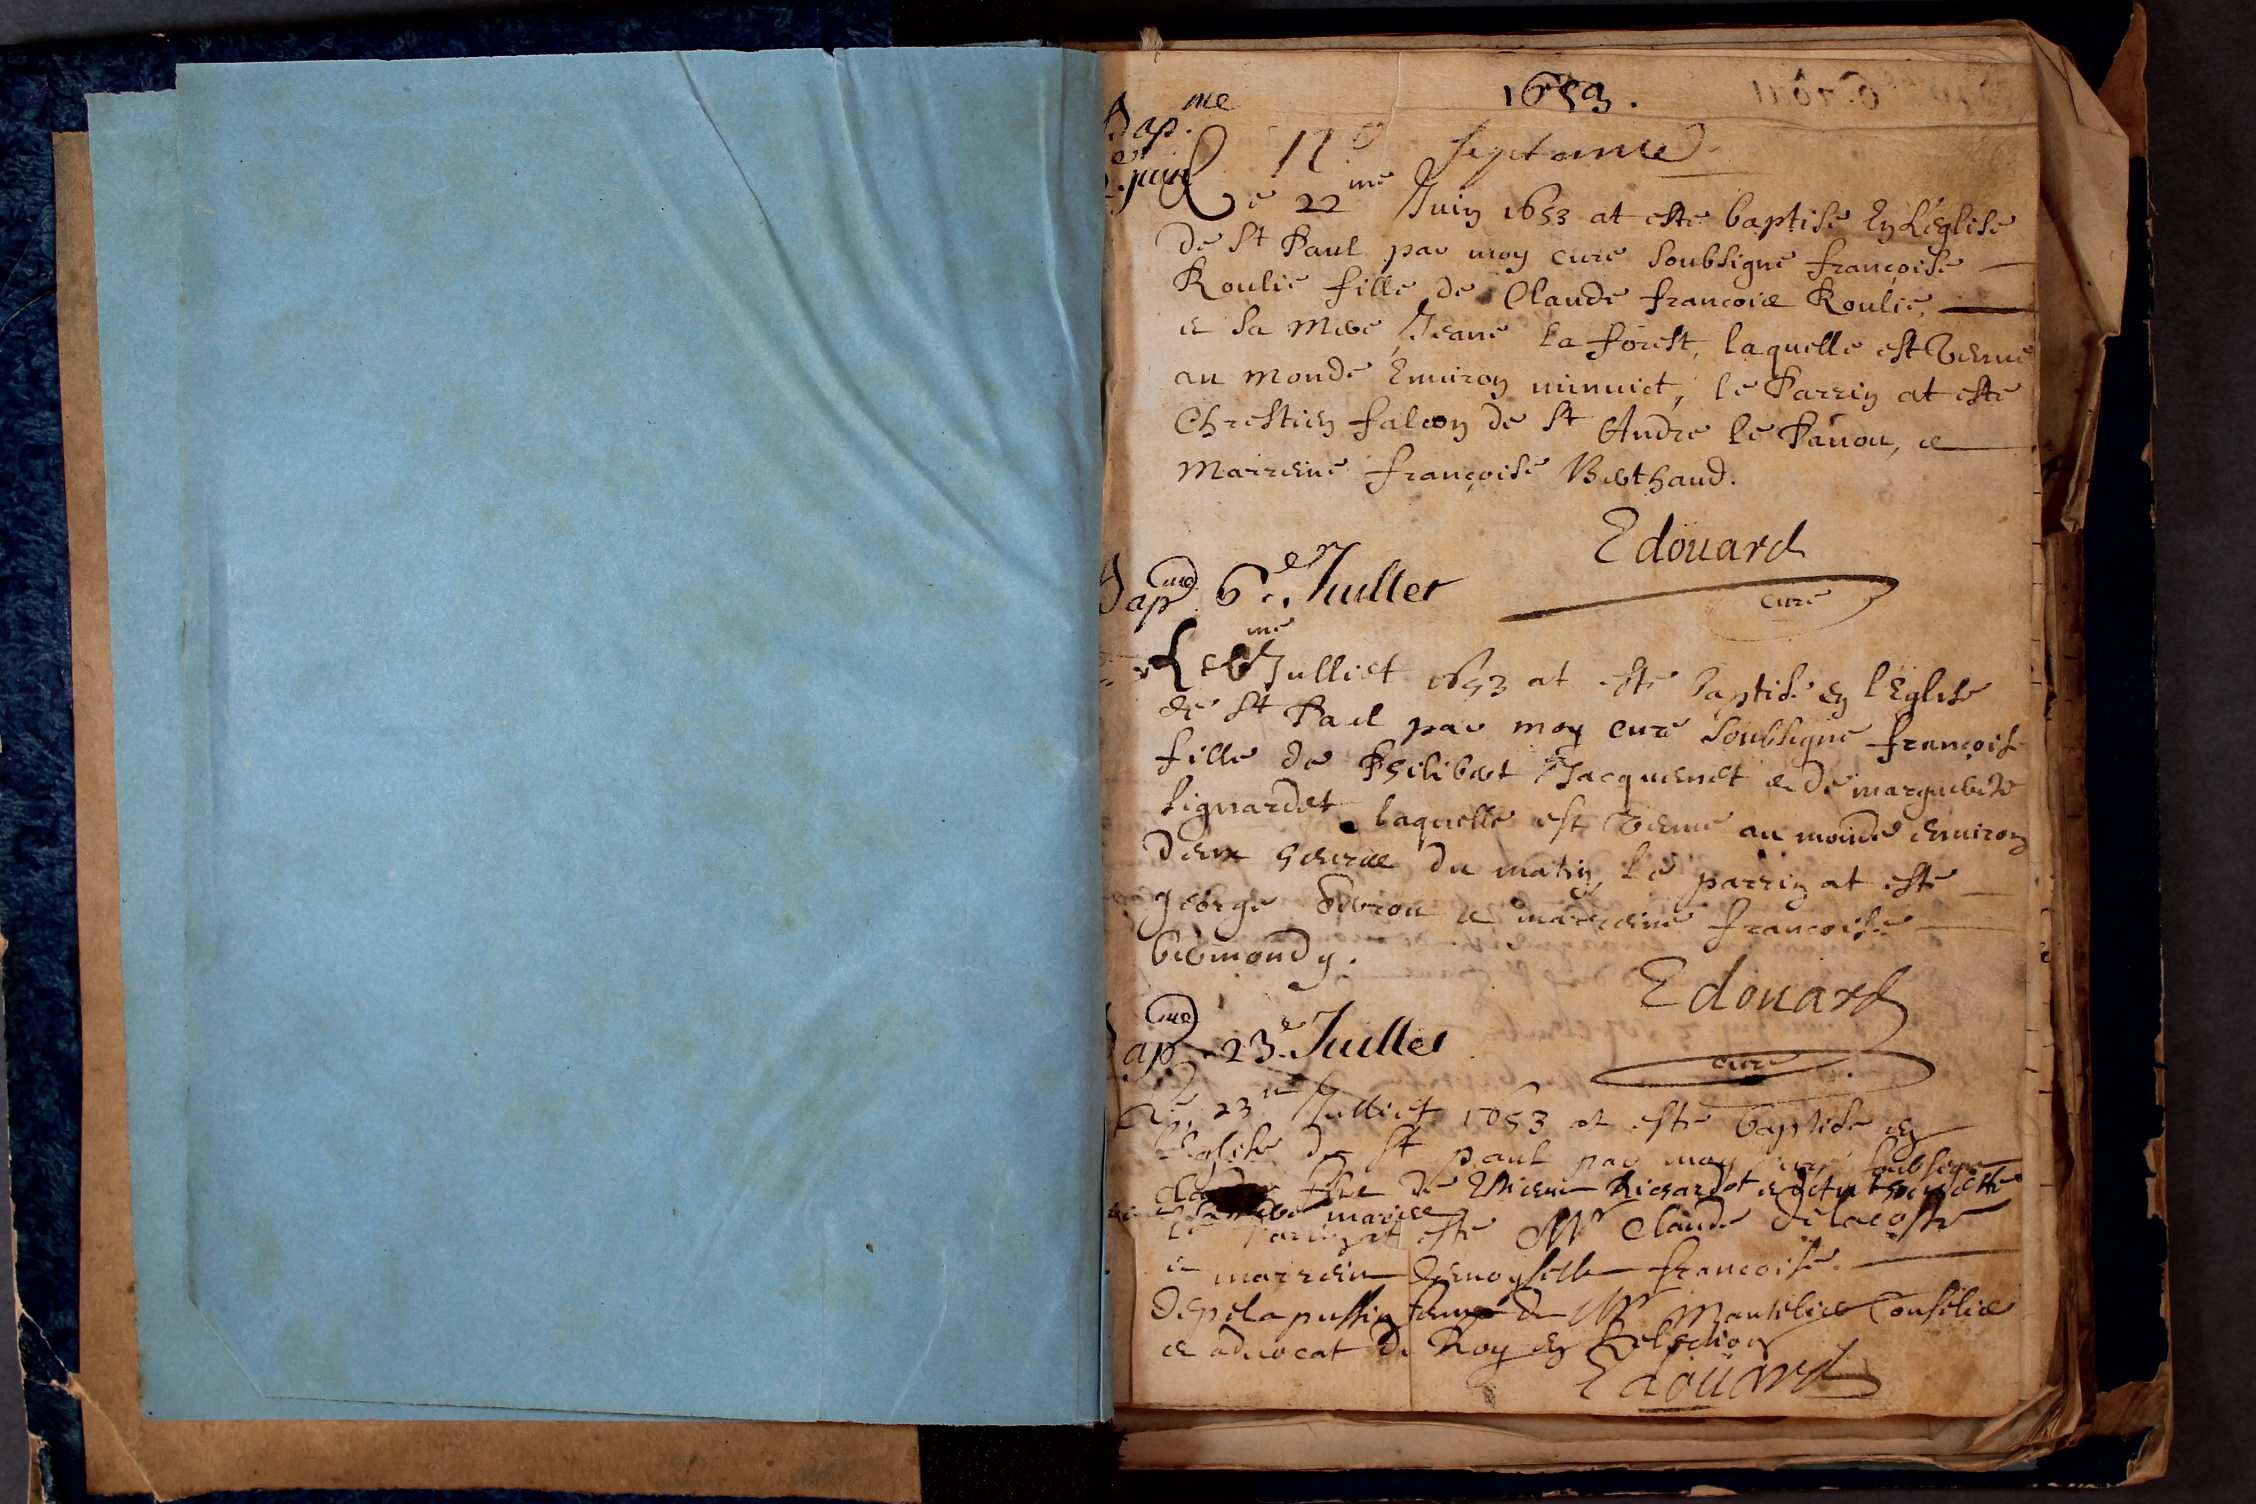 1653.
Bap.me
12e septembre
Juin
Le 22me Juin 1653 at esté baptisé En L'église
de St Paul par moy curé soubsigné françoise
Roulié fille de Claude françois Roulié,
et sa mere Jeane la forest, laquelle est venue
au monde Environ minuict, le Parrin at esté
Chrestien falcon de St André le Panou, et
marreine françoise Berthaud.
Edoüard
curé
Bapme 6.e Juillet
Le 6me Julliet 1653 at esté baptisé en l'Eglise
de St Paul par moy curé soubsigné françoise
fille de Philibert Jacquenet et de marguerite
Lignardet laquelle est venue au monde environ
deux heures du matin, le parrin at esté
george et marreine francoise
bermondy.
Edoüard
curé
Bapme 23.e Juillet
Le 23me Julliet 1653 at esté baptisé en
L'eglise de St paul par moy curé soubsigné
fille de Richardot et
sa mere marie
le Parrin at esté Mr Claude delacoste
et marreine Damoyselle francoise
femme de Mr Conselier
et advocat du Roy en
Edoüard